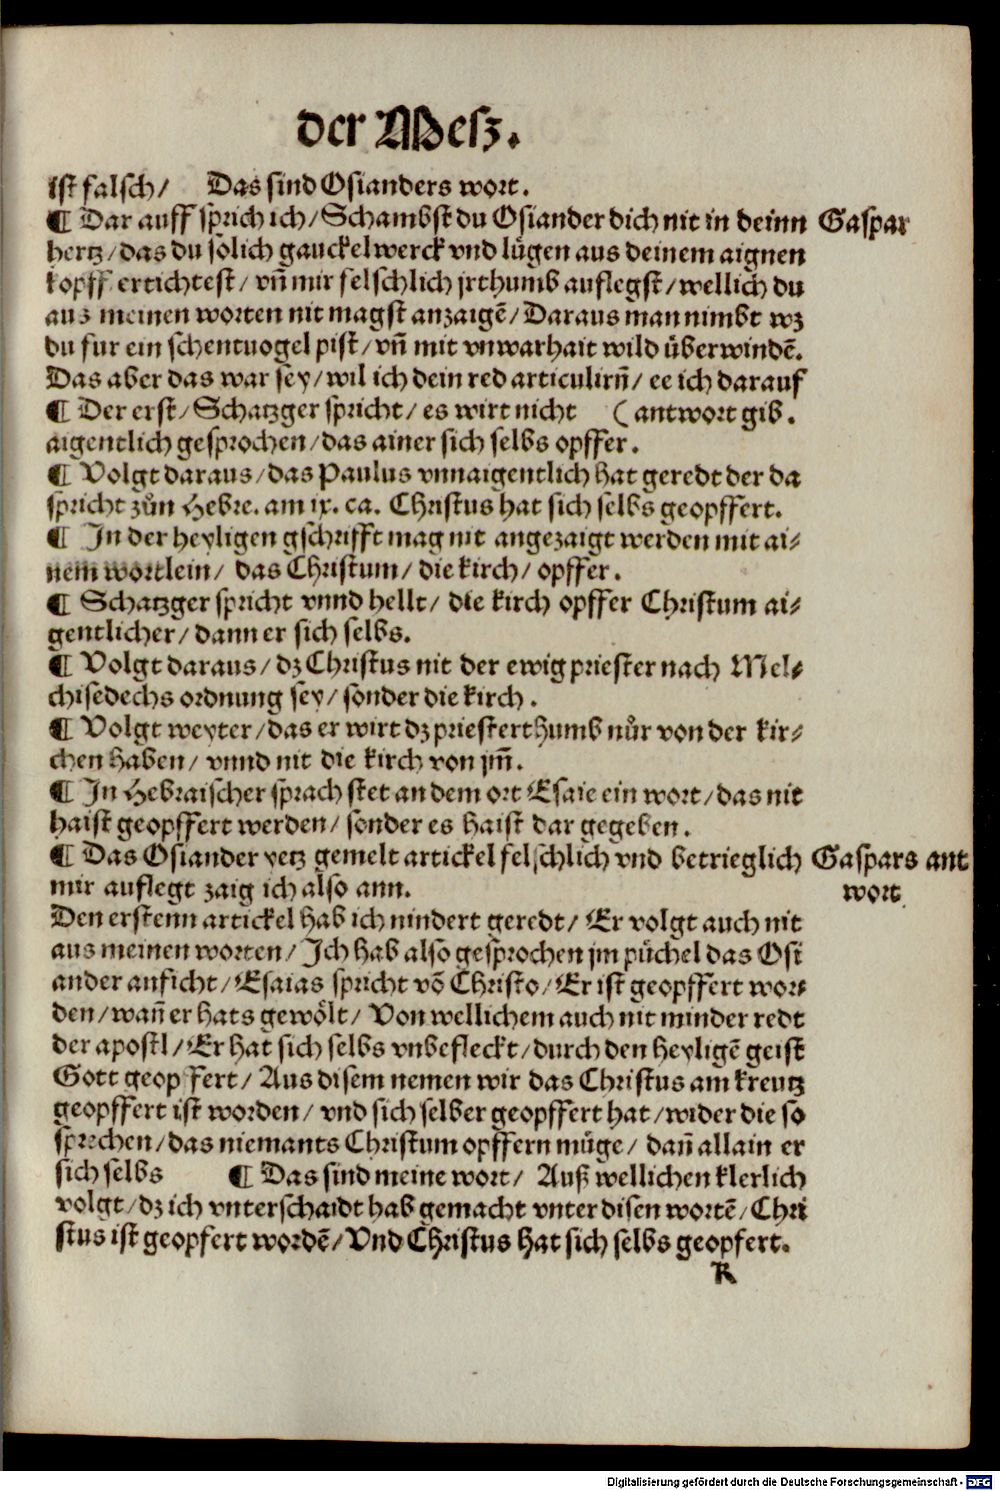 der Mesz.
ist falsch/ Das sind Osianders wort.
¶ Dar auff sprich ich/Schambst du Osiander dich nit in deinn Gaspar
hertz/das du sölich gauckelwerck vnd lügen aus deinem aignen
kopff ertichtest/ vñ mir felschlich jrthumb auflegst/wellich du
aus meinen worten nit magst anzaigē/Daraus man nimbt wz
du fur ein schentuogel pist/vñ mit vnwarhait wild überwindē.
Das aber das war sey/wil ich dein red articulirñ/ ee ich darauf
¶ Der erst/Schatzger spricht/es wirt nicht (antwort gib.
aigentlich gesprochen/das ainer sich selbs opffer.
¶ Volgt daraus/das Paulus vnnaigentlich hat geredt der da
spricht zůn Hebre. am ix. ca. Christus hat sich selbs geopffert.
¶ In der heyligen gschrifft mag nit angezaigt werden mit ai/
nem wortlein/ das Christum/die kirch/opffer.
¶ Schatzger spricht vnnd hellt/ die kirch opffer Christum ai/
gentlicher/dann er sich selbs.
¶ Volgt daraus/ dz Christus nit der ewig priester nach Mel/
chisedechs ordnung sey/sonder die kirch.
¶ Volgt weyter/das er wirt dz priesterthumb nůr von der kir/
chen haben/ vnnd nit die kirch von jm̃.
¶ In Hebraischer sprach stet an dem ort Esaie ein wort/das nit
haist geopffert werden/sonder es haist dar gegeben.
¶ Das Osiander yetz gemelt artickel felschlich vnd betrieglich Gaspars ant
mir auflegt zaig ich also ann. wort.
Den erstenn artickel hab ich nindert geredt/ Er volgt auch nit
aus meinen worten/Ich hab also gesprochen jm püchel das Osi
ander anficht/Esaias spricht vō Christo/Er ist geopffert wor/
den/wañ er hats gewölt/ Von wellichem auch nit minder redt
der apostl/Er hat sich selbs vnbefleckt/durch den heyligē geist
Gott geopffert/Aus disem nemen wir das Christus am kreutz
geopffert ist worden/ vnd sich selber geopffert hat/wider die so
sprechen/das niemants Christum opffern müge/ dañ allain er
sich selbs ¶ Das sind meine wort/ Auß wellichen klerlich
volgt/dz ich vnterschaidt hab gemacht vnter disen wortē/Chri
stus ist geopfert wordē/Vnd Christus hat sich selbs geopfert.
R
Digitalisierung gefördert durch die Deutsche Forschungsgemeinschaft - DFG